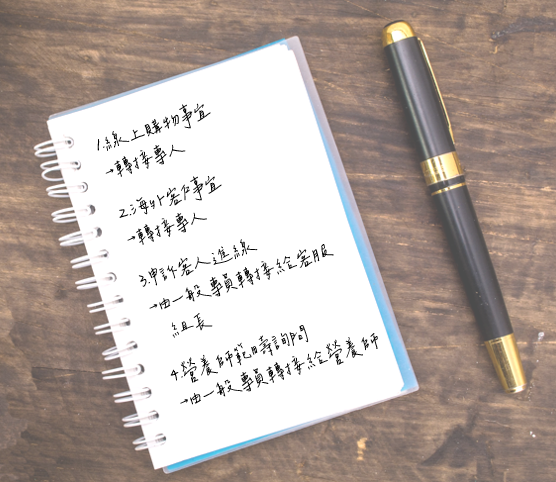 1.線上購物事宜
→轉接專人
2.海外客戶事宜
→轉接專人
3.申訴客人進線
→由一般專員轉接給客服
組長
4.營養師範疇詢問
→由一般專員轉接給營養師